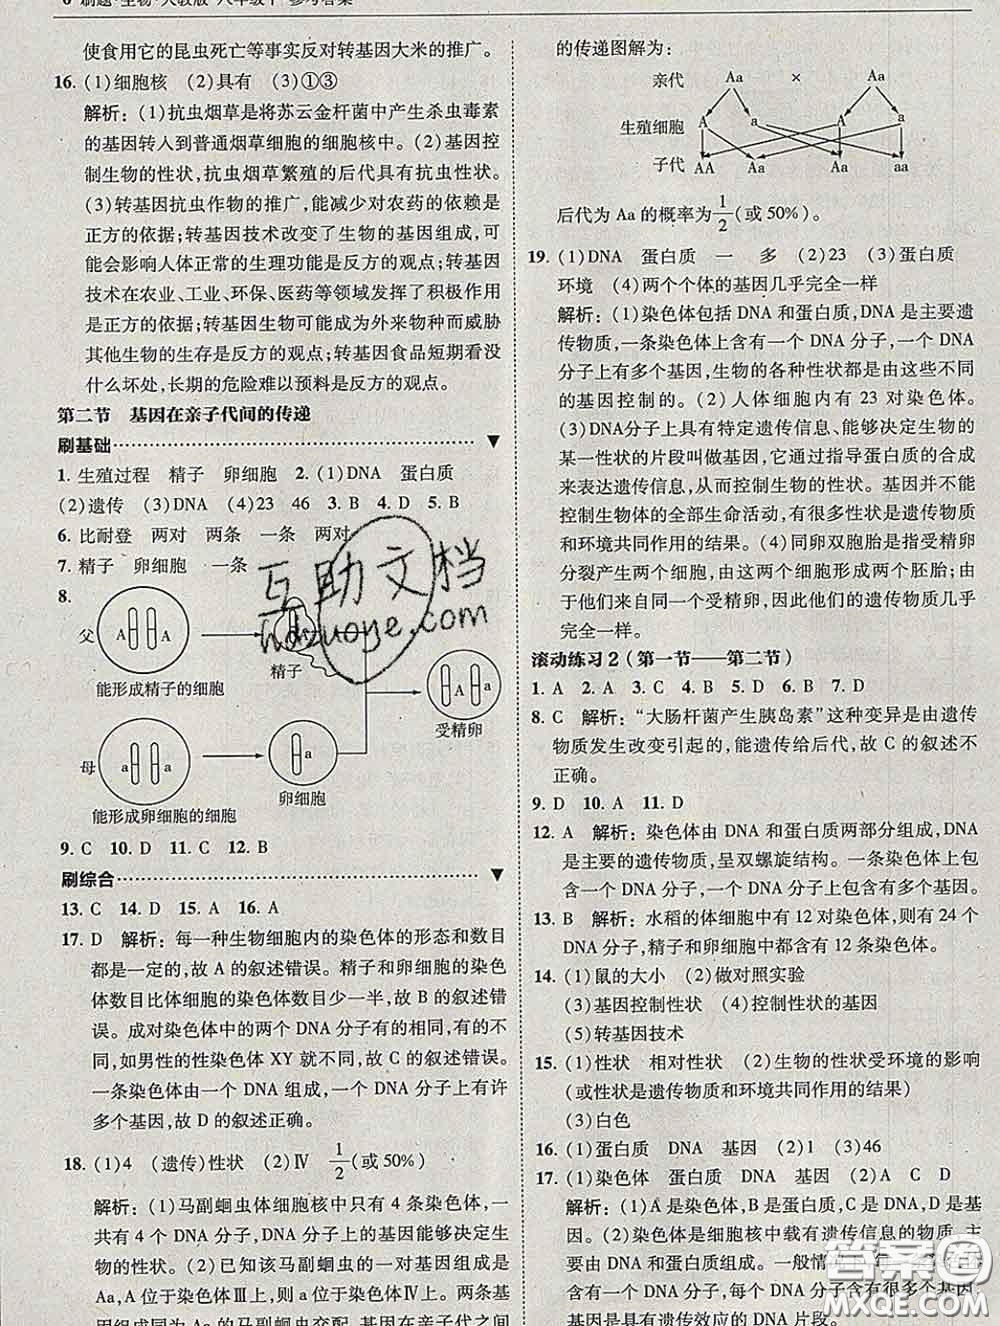 6 刷题·生物·人教版·八年级下 参考答案
使食用它的昆虫死亡等事实反对转基因大米的推广。
16. (1)细胞核 (2)具有 (3)①③
解析：(1)抗虫烟草是将苏云金杆菌中产生杀虫毒素
的基因转入到普通烟草细胞的细胞核中。(2)基因控
制生物的性状,抗虫烟草繁殖的后代具有抗虫性状。
(3)转基因抗虫作物的推广,能减少对农药的依赖是
正方的依据;转基因技术改变了生物的基因组成,可
能会影响人体正常的生理功能是反方的观点;转基因
技术在农业、工业、环保、医药等领域发挥了积极作用
是正方的依据;转基因生物可能成为外来物种而威胁
其他生物的生存是反方的观点;转基因食品短期看没
什么坏处,长期的危险难以预料是反方的观点。
第二节 基因在亲子代间的传递
刷基础
1. 生殖过程 精子 卵细胞 2. (1)DNA 蛋白质
(2)遗传 (3)DNA (4)23 46 3. B 4. D 5. B
6. 比耐登 两对 两条 一条 两对
7. 精子 卵细胞 一条
8.
父 A A
能形成精子的细胞
精子
A a
受精卵
母 a a
能形成卵细胞的细胞
a
卵细胞
9. C 10. D 11. C 12. B
刷综合
13. C 14. D 15. A 16. A
17. D 解析：每一种生物细胞内的染色体的形态和数目
都是一定的,故 A 的叙述错误。精子和卵细胞的染色
体数目比体细胞的染色体数目少一半,故 B 的叙述错
误。成对染色体中的两个 DNA 分子有的相同,有的不
同,如男性的性染色体 XY 就不同,故 C 的叙述错误。
一条染色体由一个 DNA 组成,一个 DNA 分子上有许
多个基因,故 D 的叙述正确。
18. (1)4 (遗传)性状 (2)Ⅳ 1/2(或 50%)
解析：(1)马副蛔虫体细胞核中只有 4 条染色体,一
共有 4 个 DNA 分子,DNA 分子上的基因能够决定生
物的性状。(2)已知该马副蛔虫的一对基因组成是
Aa,A 位于染色体Ⅲ上,则 a 位于染色体Ⅳ上。基因
组成为 Aa 的马副蛔虫交配,基因在亲子代之间
的传递图解为：
亲代 Aa × Aa
生殖细胞 A a A a
子代 AA Aa Aa aa
后代为 Aa 的概率为 1/2(或 50%)。
19. (1)DNA 蛋白质 一 多 (2)23 (3)蛋白质
环境 (4)两个个体的基因几乎完全一样
解析：(1)染色体包括 DNA 和蛋白质,DNA 是主要遗
传物质,一条染色体上含有一个 DNA 分子,一个 DNA
分子上有多个基因,生物的各种性状都是由这些不同
的基因控制的。(2)人体细胞内有 23 对染色体。
(3)DNA 分子上具有特定遗传信息、能够决定生物的
某一性状的片段叫做基因,它通过指导蛋白质的合成
来表达遗传信息,从而控制生物的性状。基因并不能
控制生物体的全部生命活动,有很多性状是遗传物质
和环境共同作用的结果。(4)同卵双胞胎是指受精卵
分裂产生两个细胞,由这两个细胞形成两个胚胎;由
于他们来自同一个受精卵,因此他们的遗传物质几乎
完全一样。
滚动练习 2 (第一节——第二节)
1. A 2. A 3. C 4. B 5. D 6. B 7. D
8. C 解析：“大肠杆菌产生胰岛素”这种变异是由遗传
物质发生改变引起的,能遗传给后代,故 C 的叙述不
正确。
9. D 10. A 11. D
12. A 解析：染色体由 DNA 和蛋白质两部分组成,DNA
是主要的遗传物质,呈双螺旋结构。一条染色体上包
含一个 DNA 分子,一个 DNA 分子上包含有多个基因。
13. B 解析：水稻的体细胞中有 12 对染色体,则有 24 个
DNA 分子,精子和卵细胞中都含有 12 条染色体。
14. (1)鼠的大小 (2)做对照实验
(3)基因控制性状 (4)控制性状的基因
(5)转基因技术
15. (1)性状 相对性状 (2)生物的性状受环境的影响
(或性状是遗传物质和环境共同作用的结果)
(3)白色
16. (1)蛋白质 DNA 基因 (2)1 (3)46
17. (1)染色体 蛋白质 DNA 基因 (2)A C D
解析：(1)A 是染色体,B 是蛋白质,C 是 DNA,D 是基
因。(2)染色体是细胞核中载有遗传信息的物质,主
要由 DNA 和蛋白质组成。一般情
DNA 分子,一个 DNA 分子上含有很多个基因
因是具有遗传效应的 DNA 片段。
互助文档
hdzuoye.com
答案圈
MXQE.COM